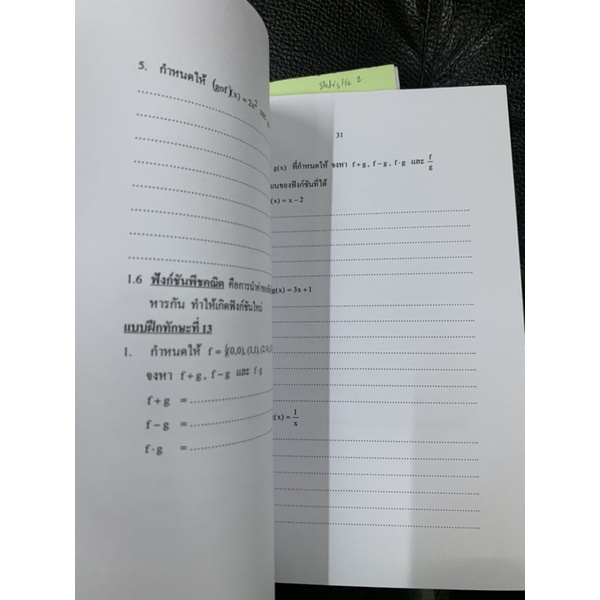 5. กำหนดให้ (gof)(x) = 2x²
1.6 ฟังก์ชันพีชคณิต คือการนำค่าของฟังก์
หารกัน ทำให้เกิดฟังก์ชันใหม่
แบบฝึกทักษะที่ 13
1. กำหนดให้ f = {(0,0), (1,1), (2,4),
จงหา f+g , f−g และ f·g
f + g =
f − g =
f·g =
31
g(x) ที่กำหนดให้ จงหา f+g , f−g , f·g และ f/g
มนของฟังก์ชันที่ได้
(x) = x − 2
g(x) = 3x + 1
(x) = 1/x